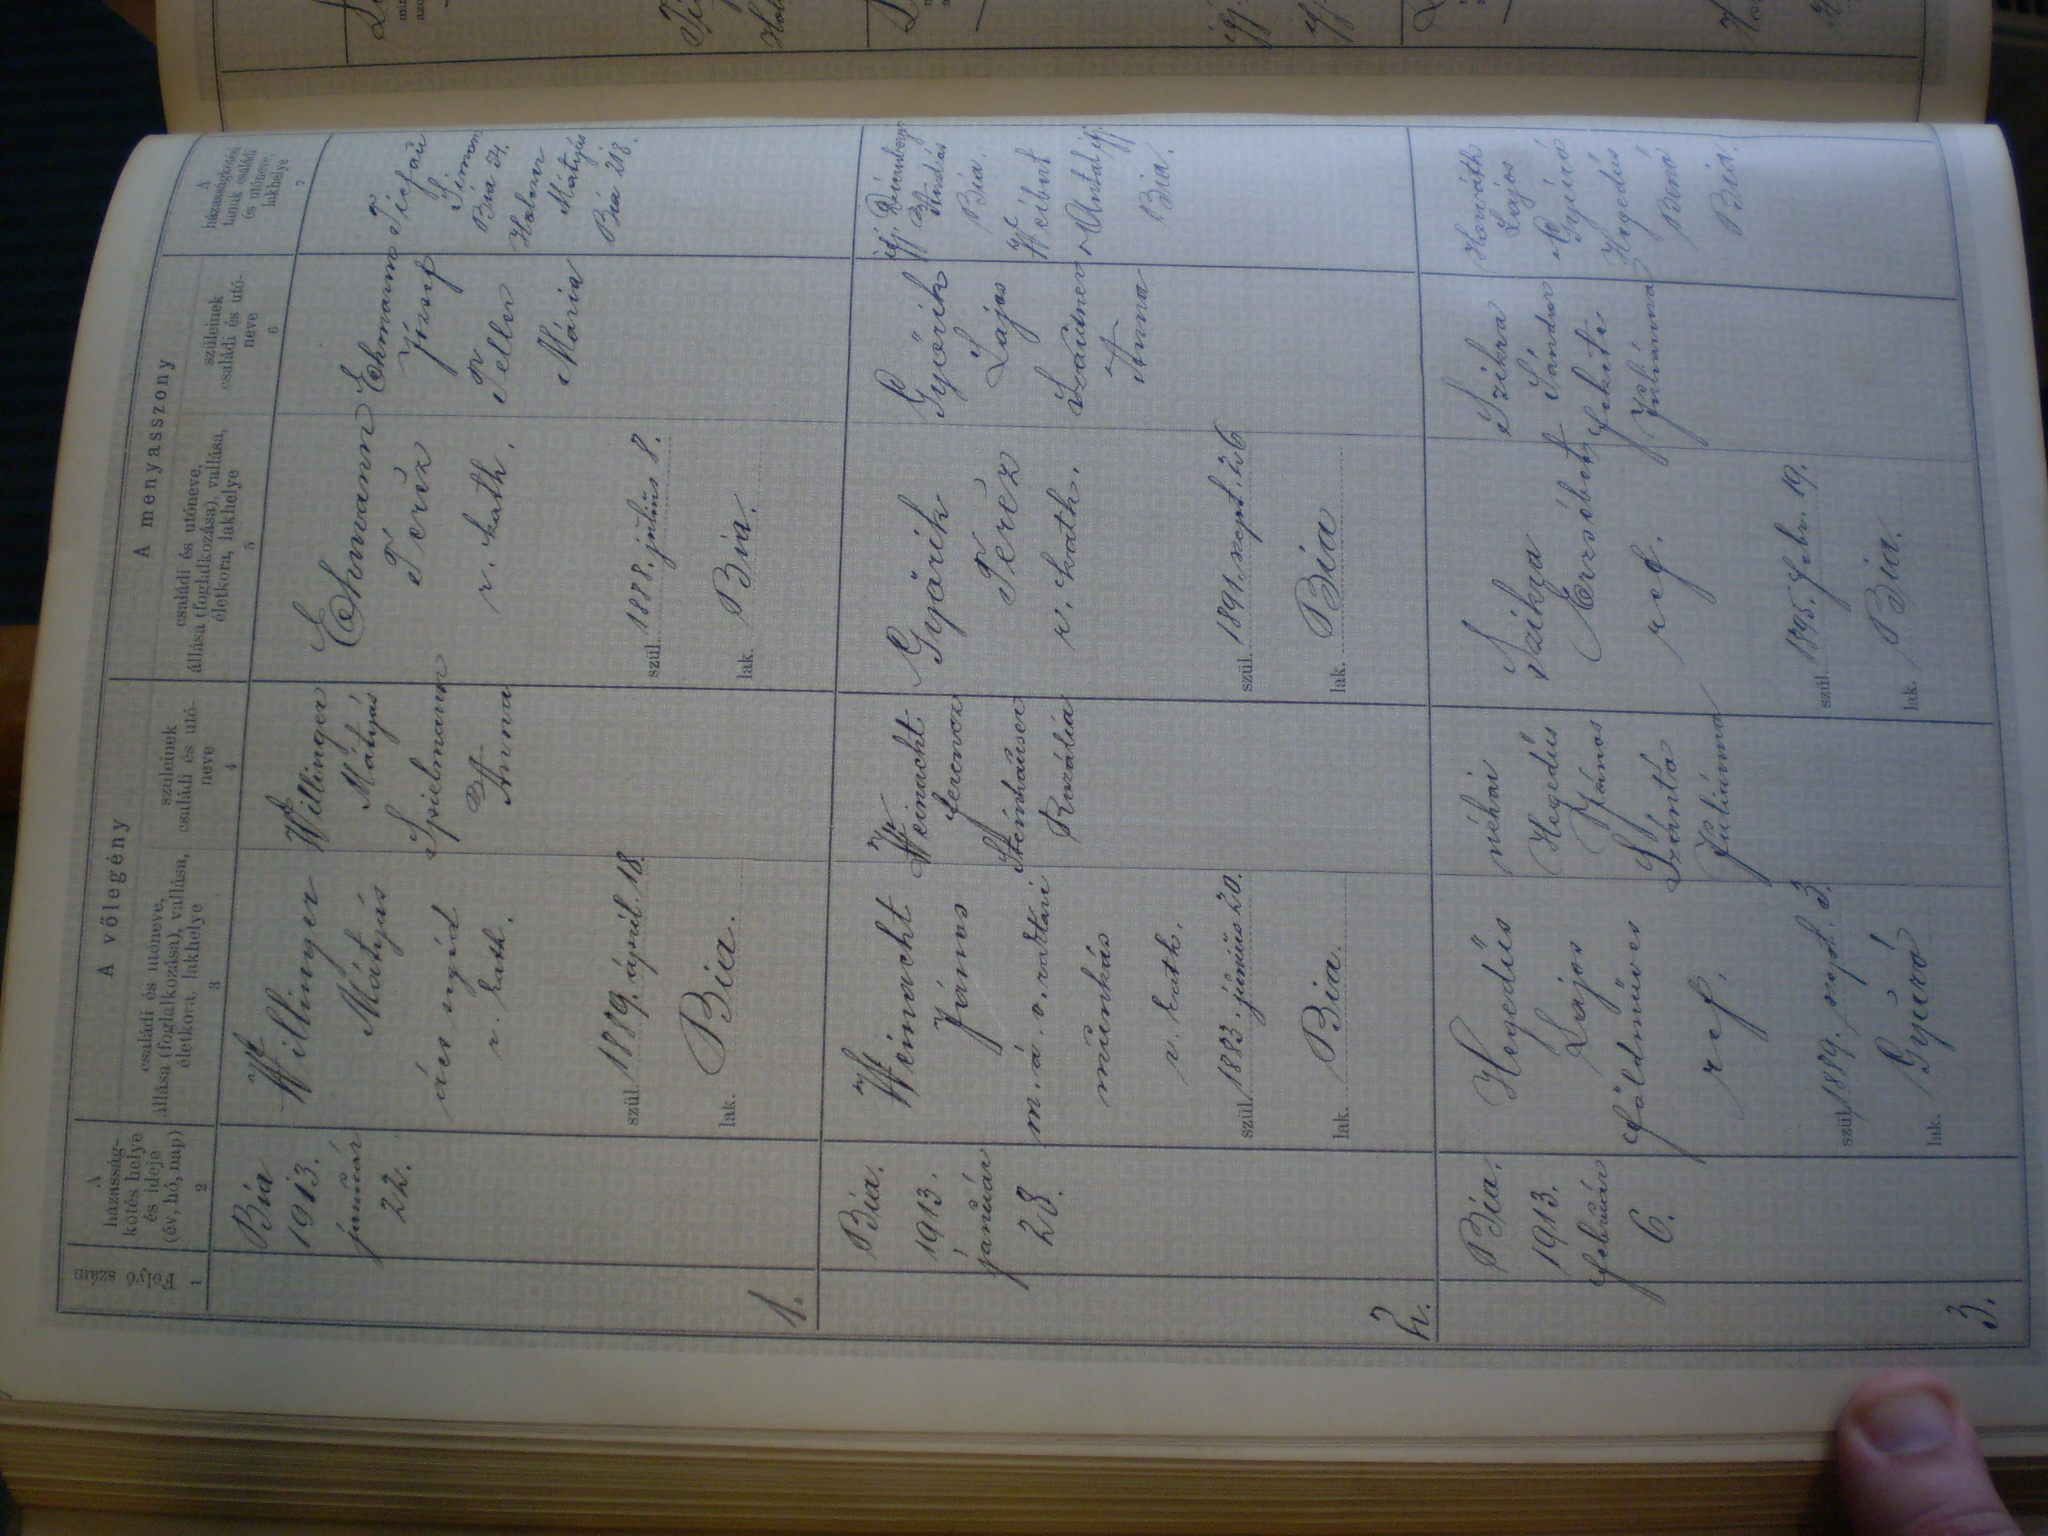 A vőlegény
A menyasszony
Folyó szám
1
A
házasság-
kötés helye
és ideje
(év, hó, nap)
2
családi és utóneve,
állása (foglalkozása), vallása,
életkora, lakhelye
3
szüleinek
családi és utó-
neve
4
családi és utóneve,
állása (foglalkozása), vallása,
életkora, lakhelye
5
szüleinek
családi és utó-
neve
6
A
házasságkötési
tanuk családi
és utóneve,
lakhelye
7
1.
Bia
1913.
január
22.
Willinger
Mátyás
ács segéd
r. kath.
szül. 1889. április 18.
lak. Bia.
Willinger
Mátyás
Spielmann
Anna
Ehmann
Teréz
r. kath.
szül. 1888. julius 8.
lak. Bia.
Ehmann
József
Feller
Mária
Simon
Bia 54.
Mátyás
Bia 218.
2.
Bia.
1913.
január
28.
Weinacht
János
m. á. v. raktári
munkás
r. kath.
szül. 1883. junius 20.
lak. Bia.
Weinacht
Ferencz
Steinhauser
Rozália
Györik
Teréz
r. kath.
szül. 1891. szept. 26
lak. Bia
Györik
Lajos
Anna
ifj.
András
Bia.
Antal ifj.
Bia.
3.
Bia.
1913.
február
6.
Hegedüs
Lajos
földmüves
ref.
szül. 1889. szept. 3.
lak. Gyúró
néhai
Hegedüs
János
Szántó
Juliánna
Szikra
Erzsébet
ref.
szül. 1895. febr. 19.
lak. Bia.
Szikra
Sándor
Fekete
Juliánna
Horváth
Lajos
Gyúró
Hegedüs
Benő
Bia.